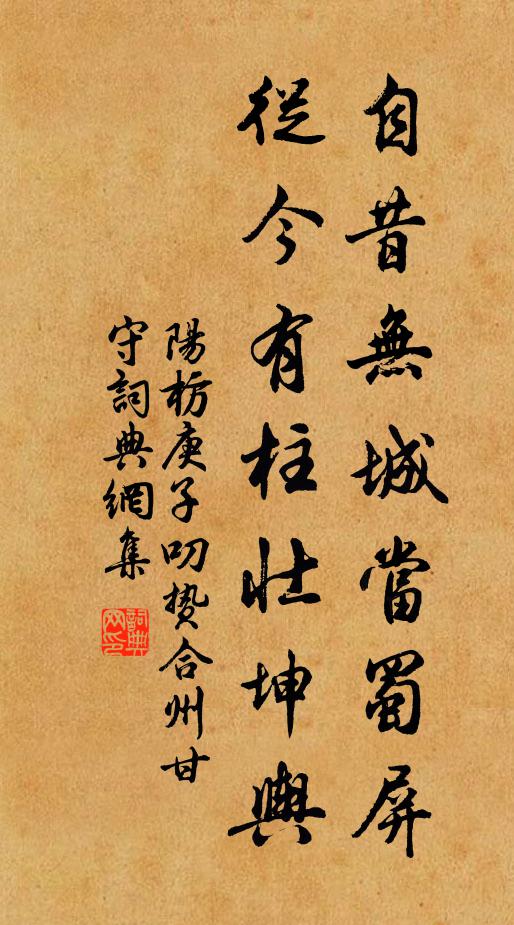 自昔無城當蜀屏
從今有柱壯坤輿
陽枋庚子叨贽合州甘
守詞典網集
詞典
网印